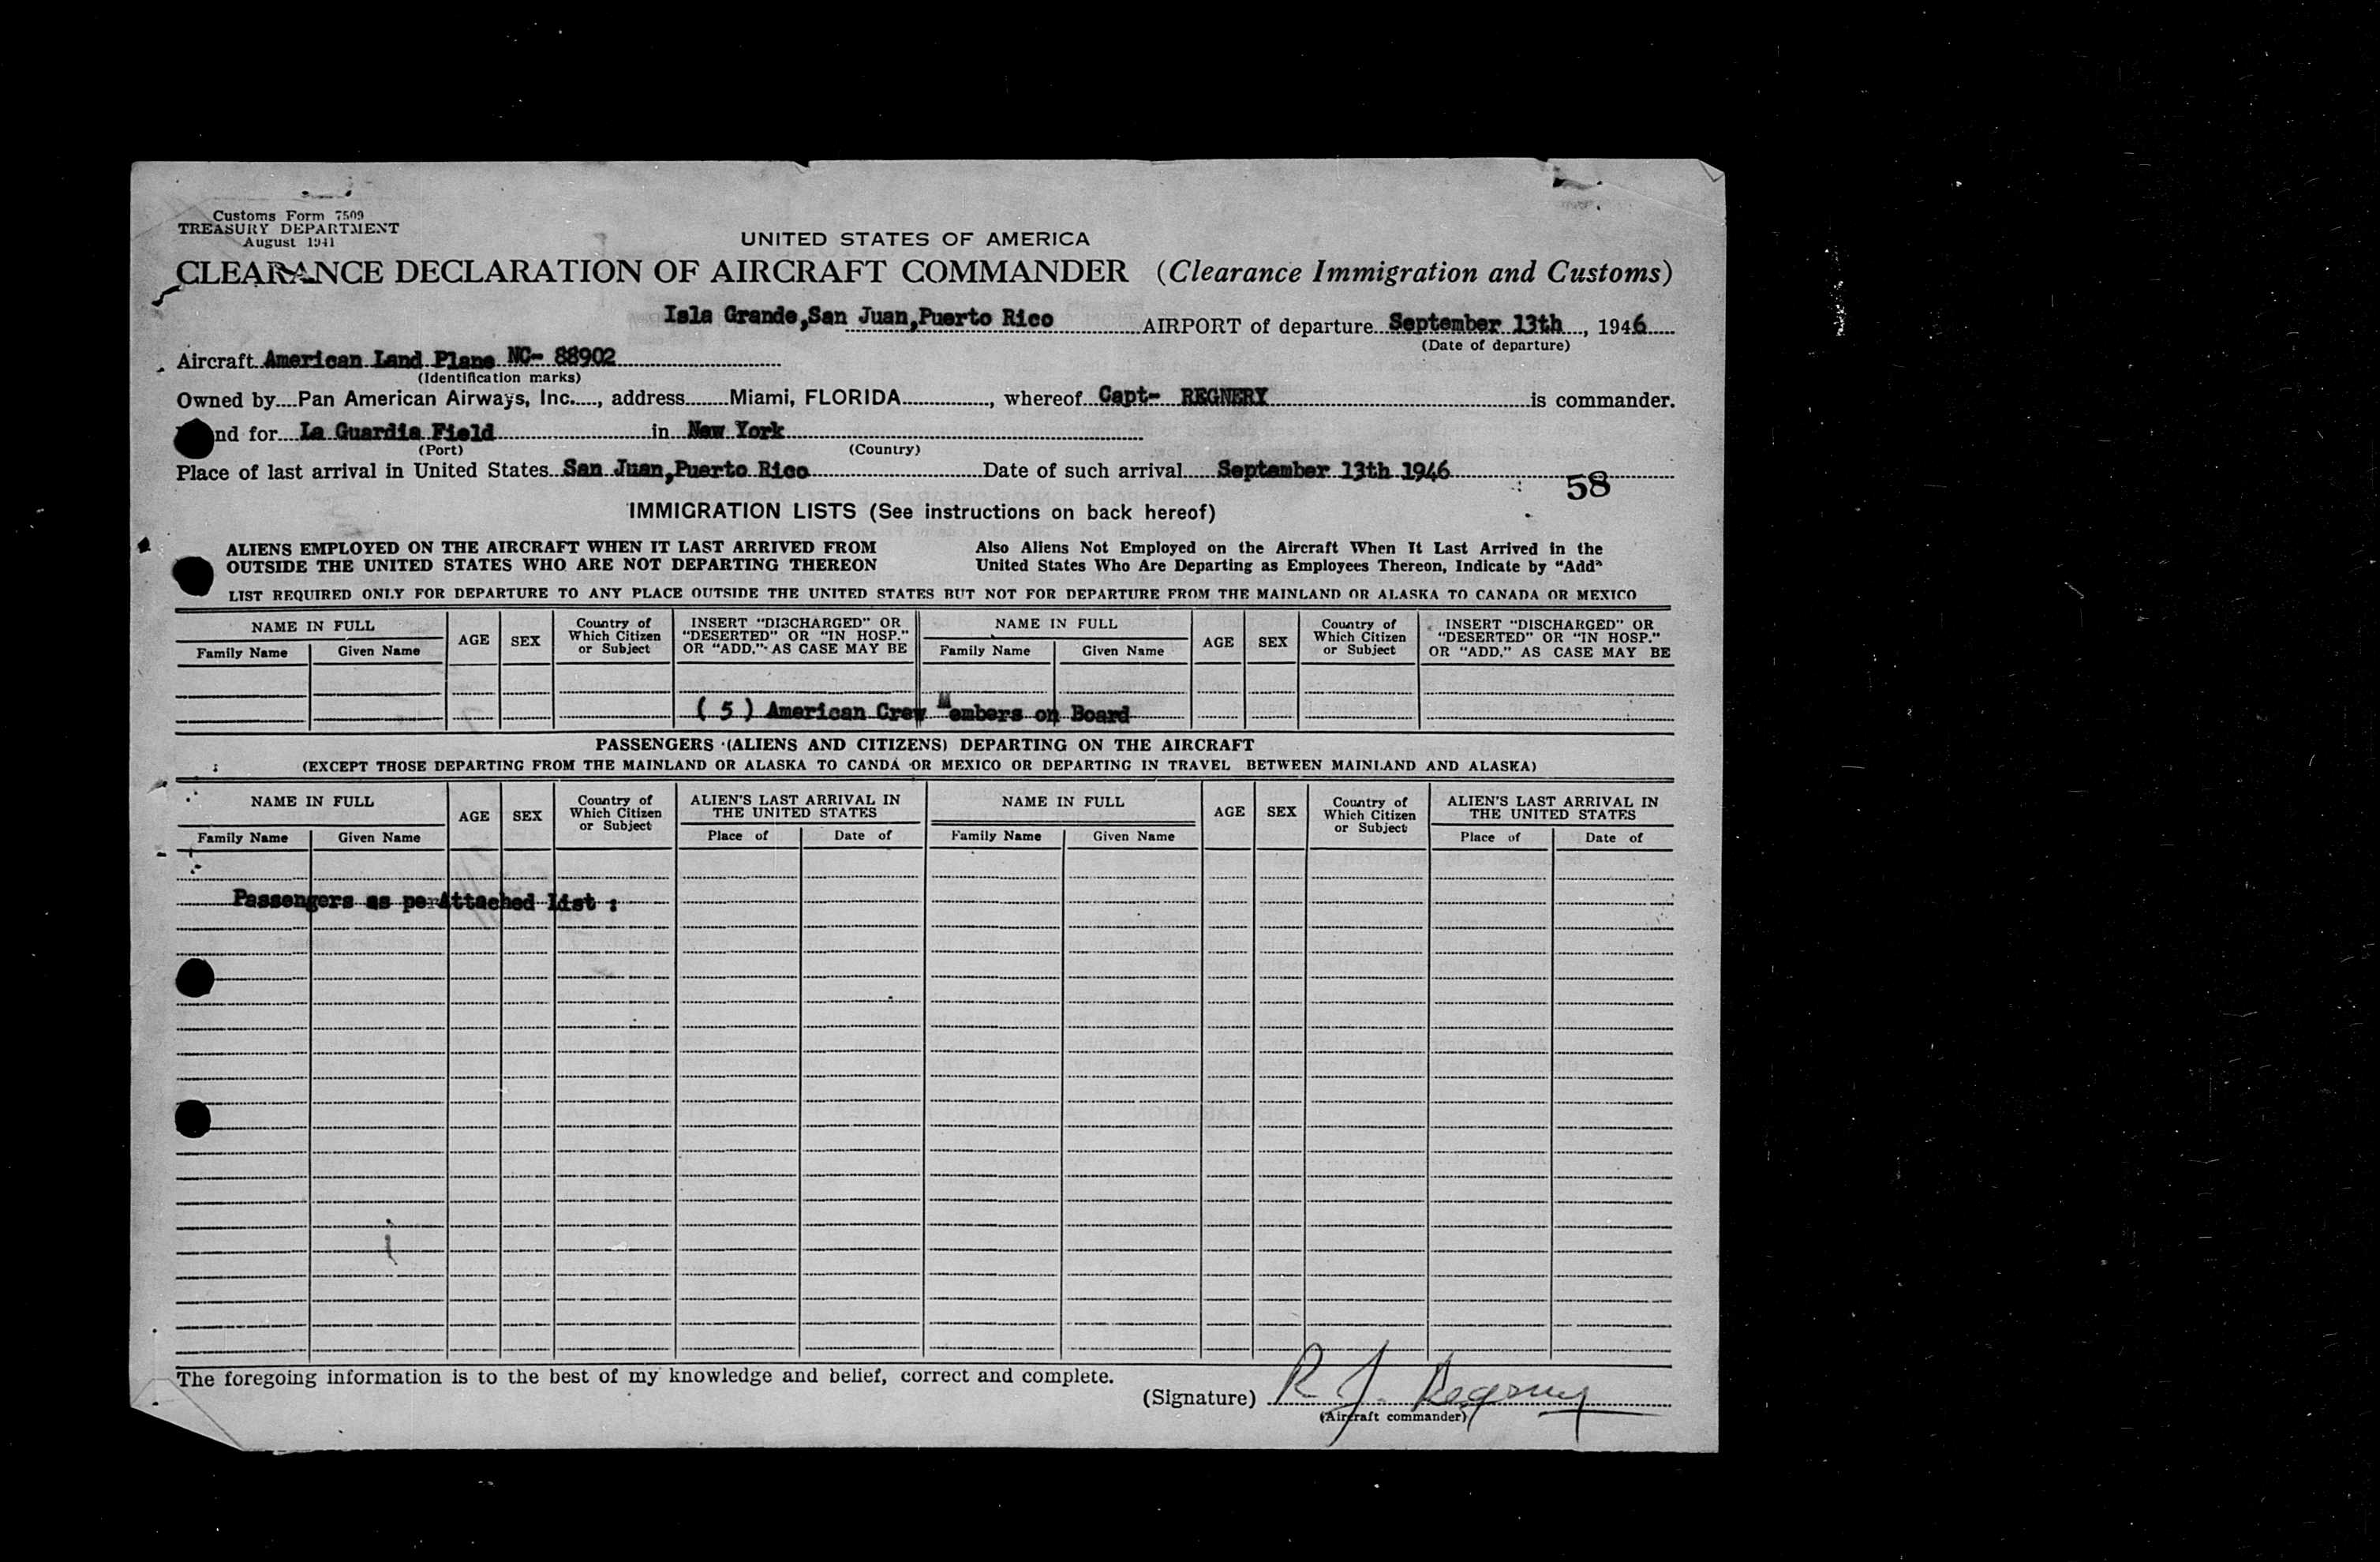 Customs Form 7509
TREASURY DEPARTMENT
August 1941
UNITED STATES OF AMERICA
CLEARANCE DECLARATION OF AIRCRAFT COMMANDER (Clearance Immigration and Customs)
Isla Grande,San Juan,Puerto Rico AIRPORT of departure September 13th, 1946
(Date of departure)
Aircraft American Land Plane NC- 88902
(Identification marks)
Owned by Pan American Airways, Inc., address Miami, FLORIDA, whereof Capt- REGNERY is commander.
nd for La Guardia Field in New York
(Port) (Country)
Place of last arrival in United States San Juan,Puerto Rico Date of such arrival September 13th 1946
58
IMMIGRATION LISTS (See instructions on back hereof)
ALIENS EMPLOYED ON THE AIRCRAFT WHEN IT LAST ARRIVED FROM
OUTSIDE THE UNITED STATES WHO ARE NOT DEPARTING THEREON
Also Aliens Not Employed on the Aircraft When It Last Arrived in the
United States Who Are Departing as Employees Thereon, Indicate by "Add"
LIST REQUIRED ONLY FOR DEPARTURE TO ANY PLACE OUTSIDE THE UNITED STATES BUT NOT FOR DEPARTURE FROM THE MAINLAND OR ALASKA TO CANADA OR MEXICO
NAME IN FULL
Family Name Given Name
AGE
SEX
Country of
Which Citizen
or Subject
INSERT "DISCHARGED" OR
"DESERTED" OR "IN HOSP."
OR "ADD," AS CASE MAY BE
NAME IN FULL
Family Name Given Name
AGE
SEX
Country of
Which Citizen
or Subject
INSERT "DISCHARGED" OR
"DESERTED" OR "IN HOSP."
OR "ADD," AS CASE MAY BE
( 5 ) American Crew Members on Board
PASSENGERS (ALIENS AND CITIZENS) DEPARTING ON THE AIRCRAFT
(EXCEPT THOSE DEPARTING FROM THE MAINLAND OR ALASKA TO CANDA OR MEXICO OR DEPARTING IN TRAVEL BETWEEN MAINLAND AND ALASKA)
NAME IN FULL
Family Name Given Name
AGE
SEX
Country of
Which Citizen
or Subject
ALIEN'S LAST ARRIVAL IN
THE UNITED STATES
Place of Date of
NAME IN FULL
Family Name Given Name
AGE
SEX
Country of
Which Citizen
or Subject
ALIEN'S LAST ARRIVAL IN
THE UNITED STATES
Place of Date of
Passengers as per Attached List :
The foregoing information is to the best of my knowledge and belief, correct and complete.
(Signature) R. J. Regnery
(Aircraft commander)